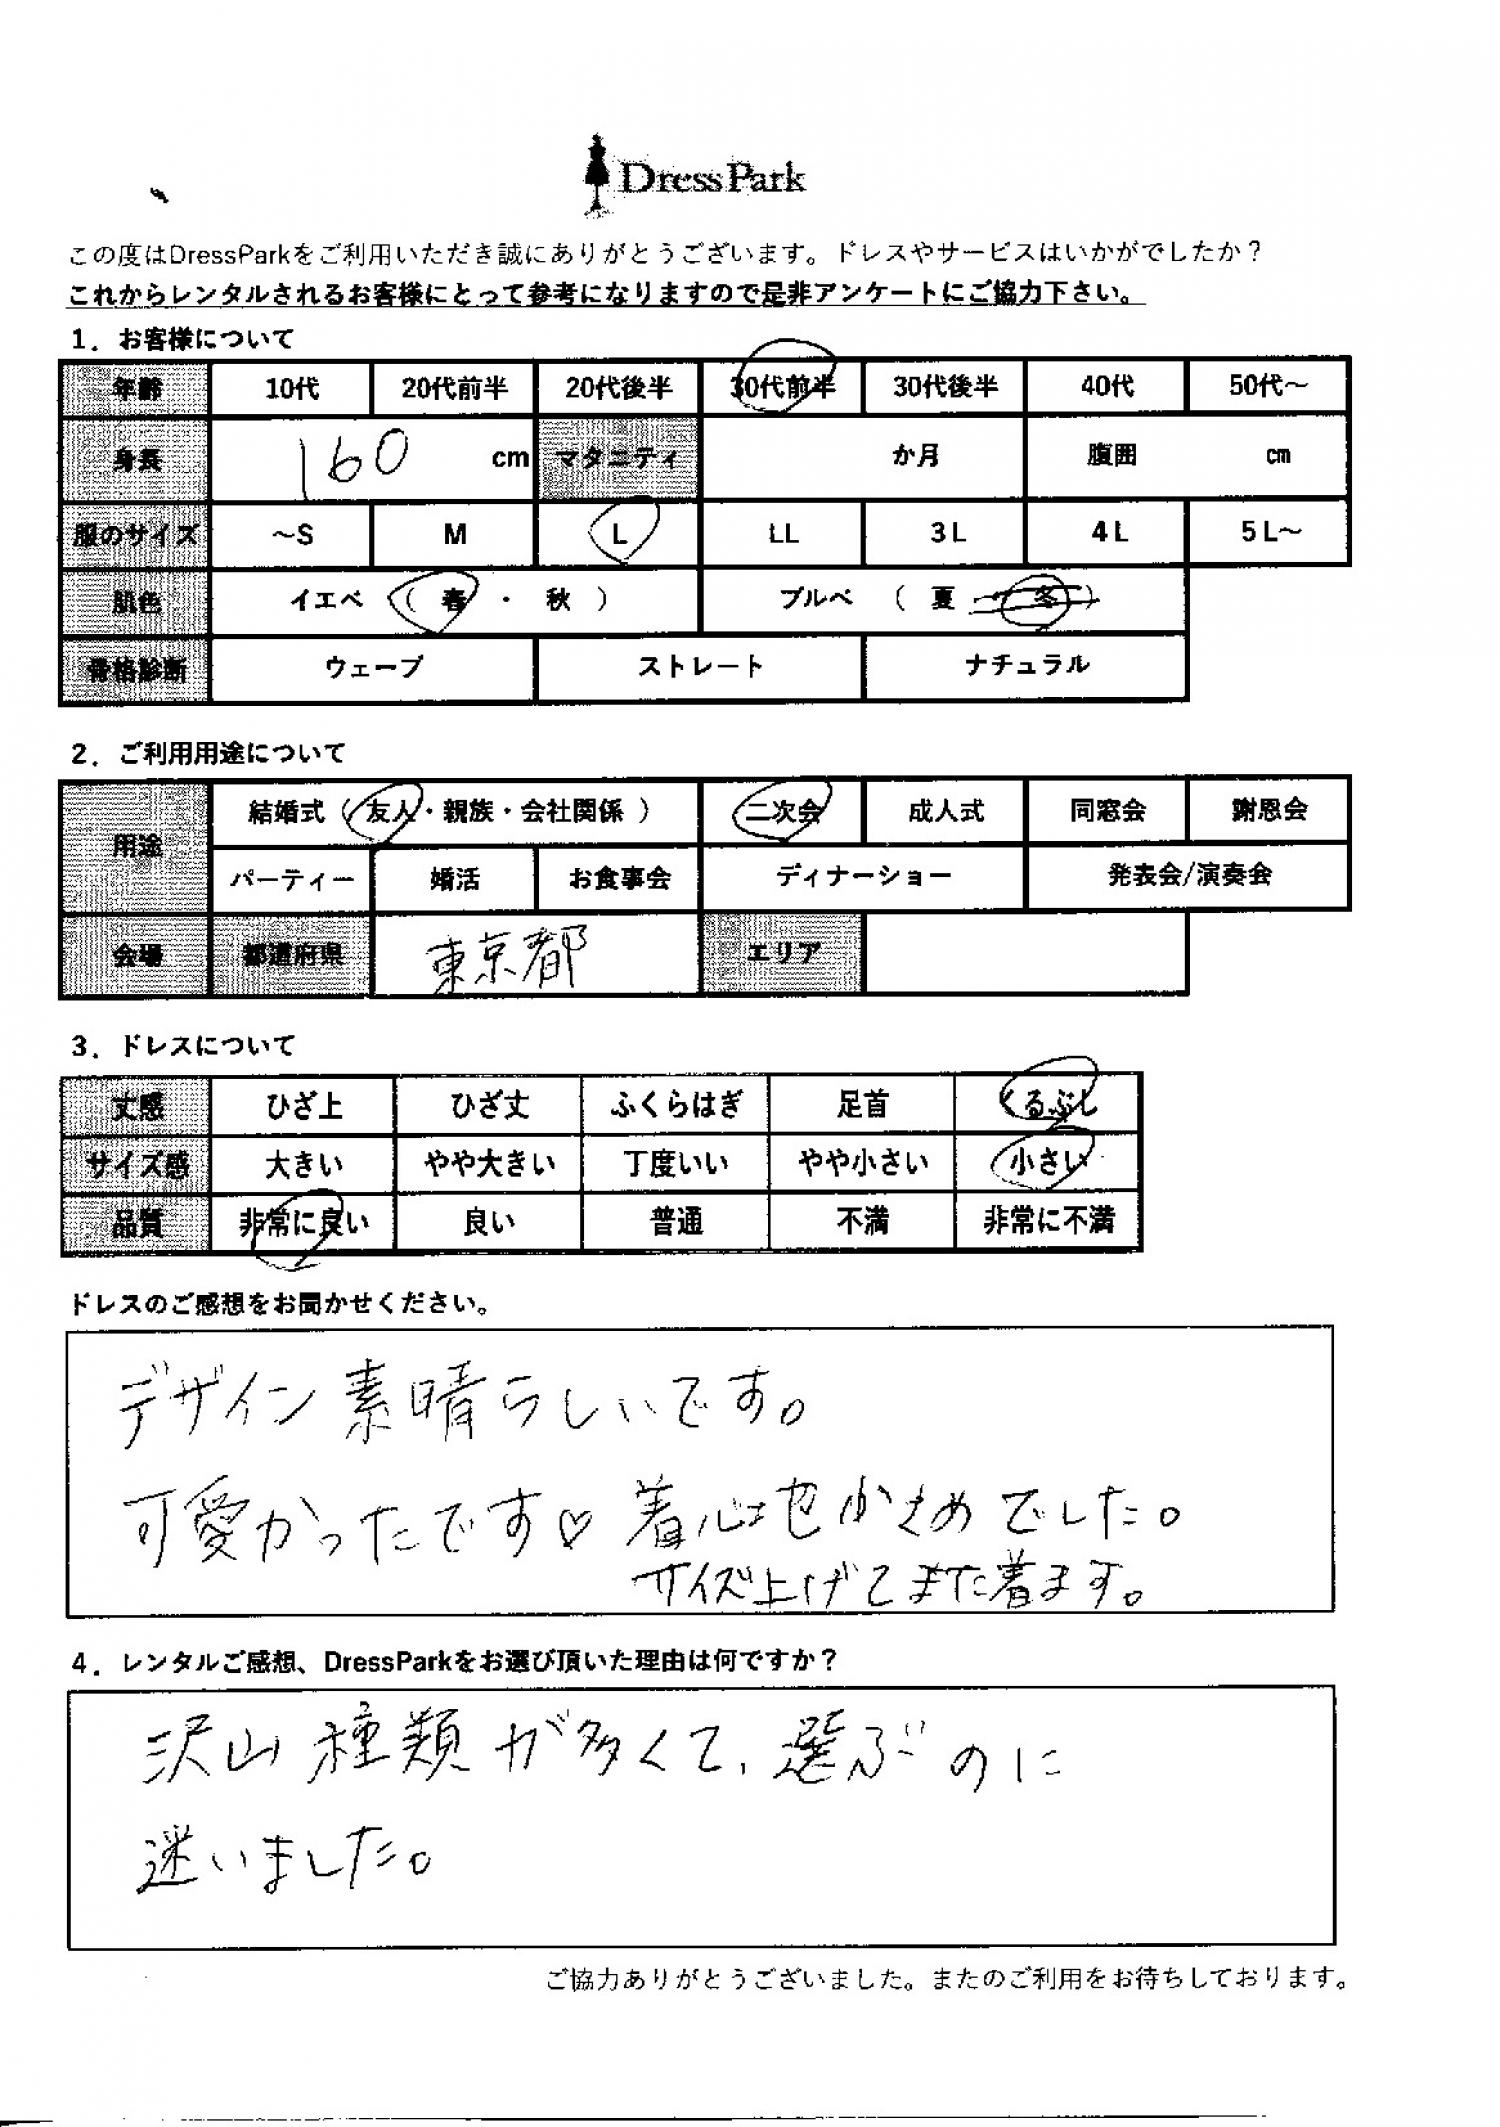 DressPark
この度はDressParkをご利用いただき誠にありがとうございます。ドレスやサービスはいかがでしたか？
これからレンタルされるお客様にとって参考になりますので是非アンケートにご協力下さい。
1．お客様について
年齢 10代 20代前半 20代後半 30代前半 30代後半 40代 50代～
身長 160 cm マタニティ か月 腹囲 cm
服のサイズ ～S M L LL 3L 4L 5L～
肌色 イエベ （ 春 ・ 秋 ） ブルベ （ 夏 ・ 冬 ）
骨格診断 ウェーブ ストレート ナチュラル
2．ご利用用途について
用途 結婚式（ 友人・親族・会社関係 ） 二次会 成人式 同窓会 謝恩会
パーティー 婚活 お食事会 ディナーショー 発表会/演奏会
会場 都道府県 東京都 エリア
3．ドレスについて
丈感 ひざ上 ひざ丈 ふくらはぎ 足首 くるぶし
サイズ感 大きい やや大きい 丁度いい やや小さい 小さい
品質 非常に良い 良い 普通 不満 非常に不満
ドレスのご感想をお聞かせください。
デザイン素晴らしいです。
可愛かったです♡ 着心地 でした。
サイズ上げてまた着ます。
4．レンタルご感想、DressParkをお選び頂いた理由は何ですか？
沢山種類が多くて、選ぶのに
迷いました。
ご協力ありがとうございました。またのご利用をお待ちしております。